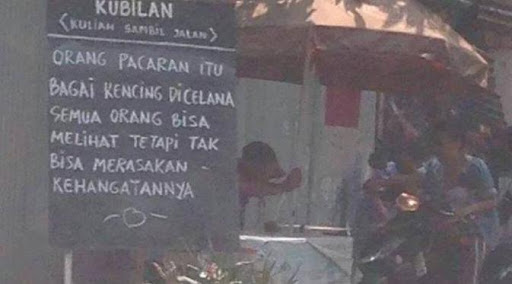 KUBILAN
<KULIAH SAMBIL JALAN>
ORANG PACARAN ITU
BAGAI KENCING DICELANA
SEMUA ORANG BISA
MELIHAT TETAPI TAK
BISA MERASAKAN -
KEHANGATANNYA